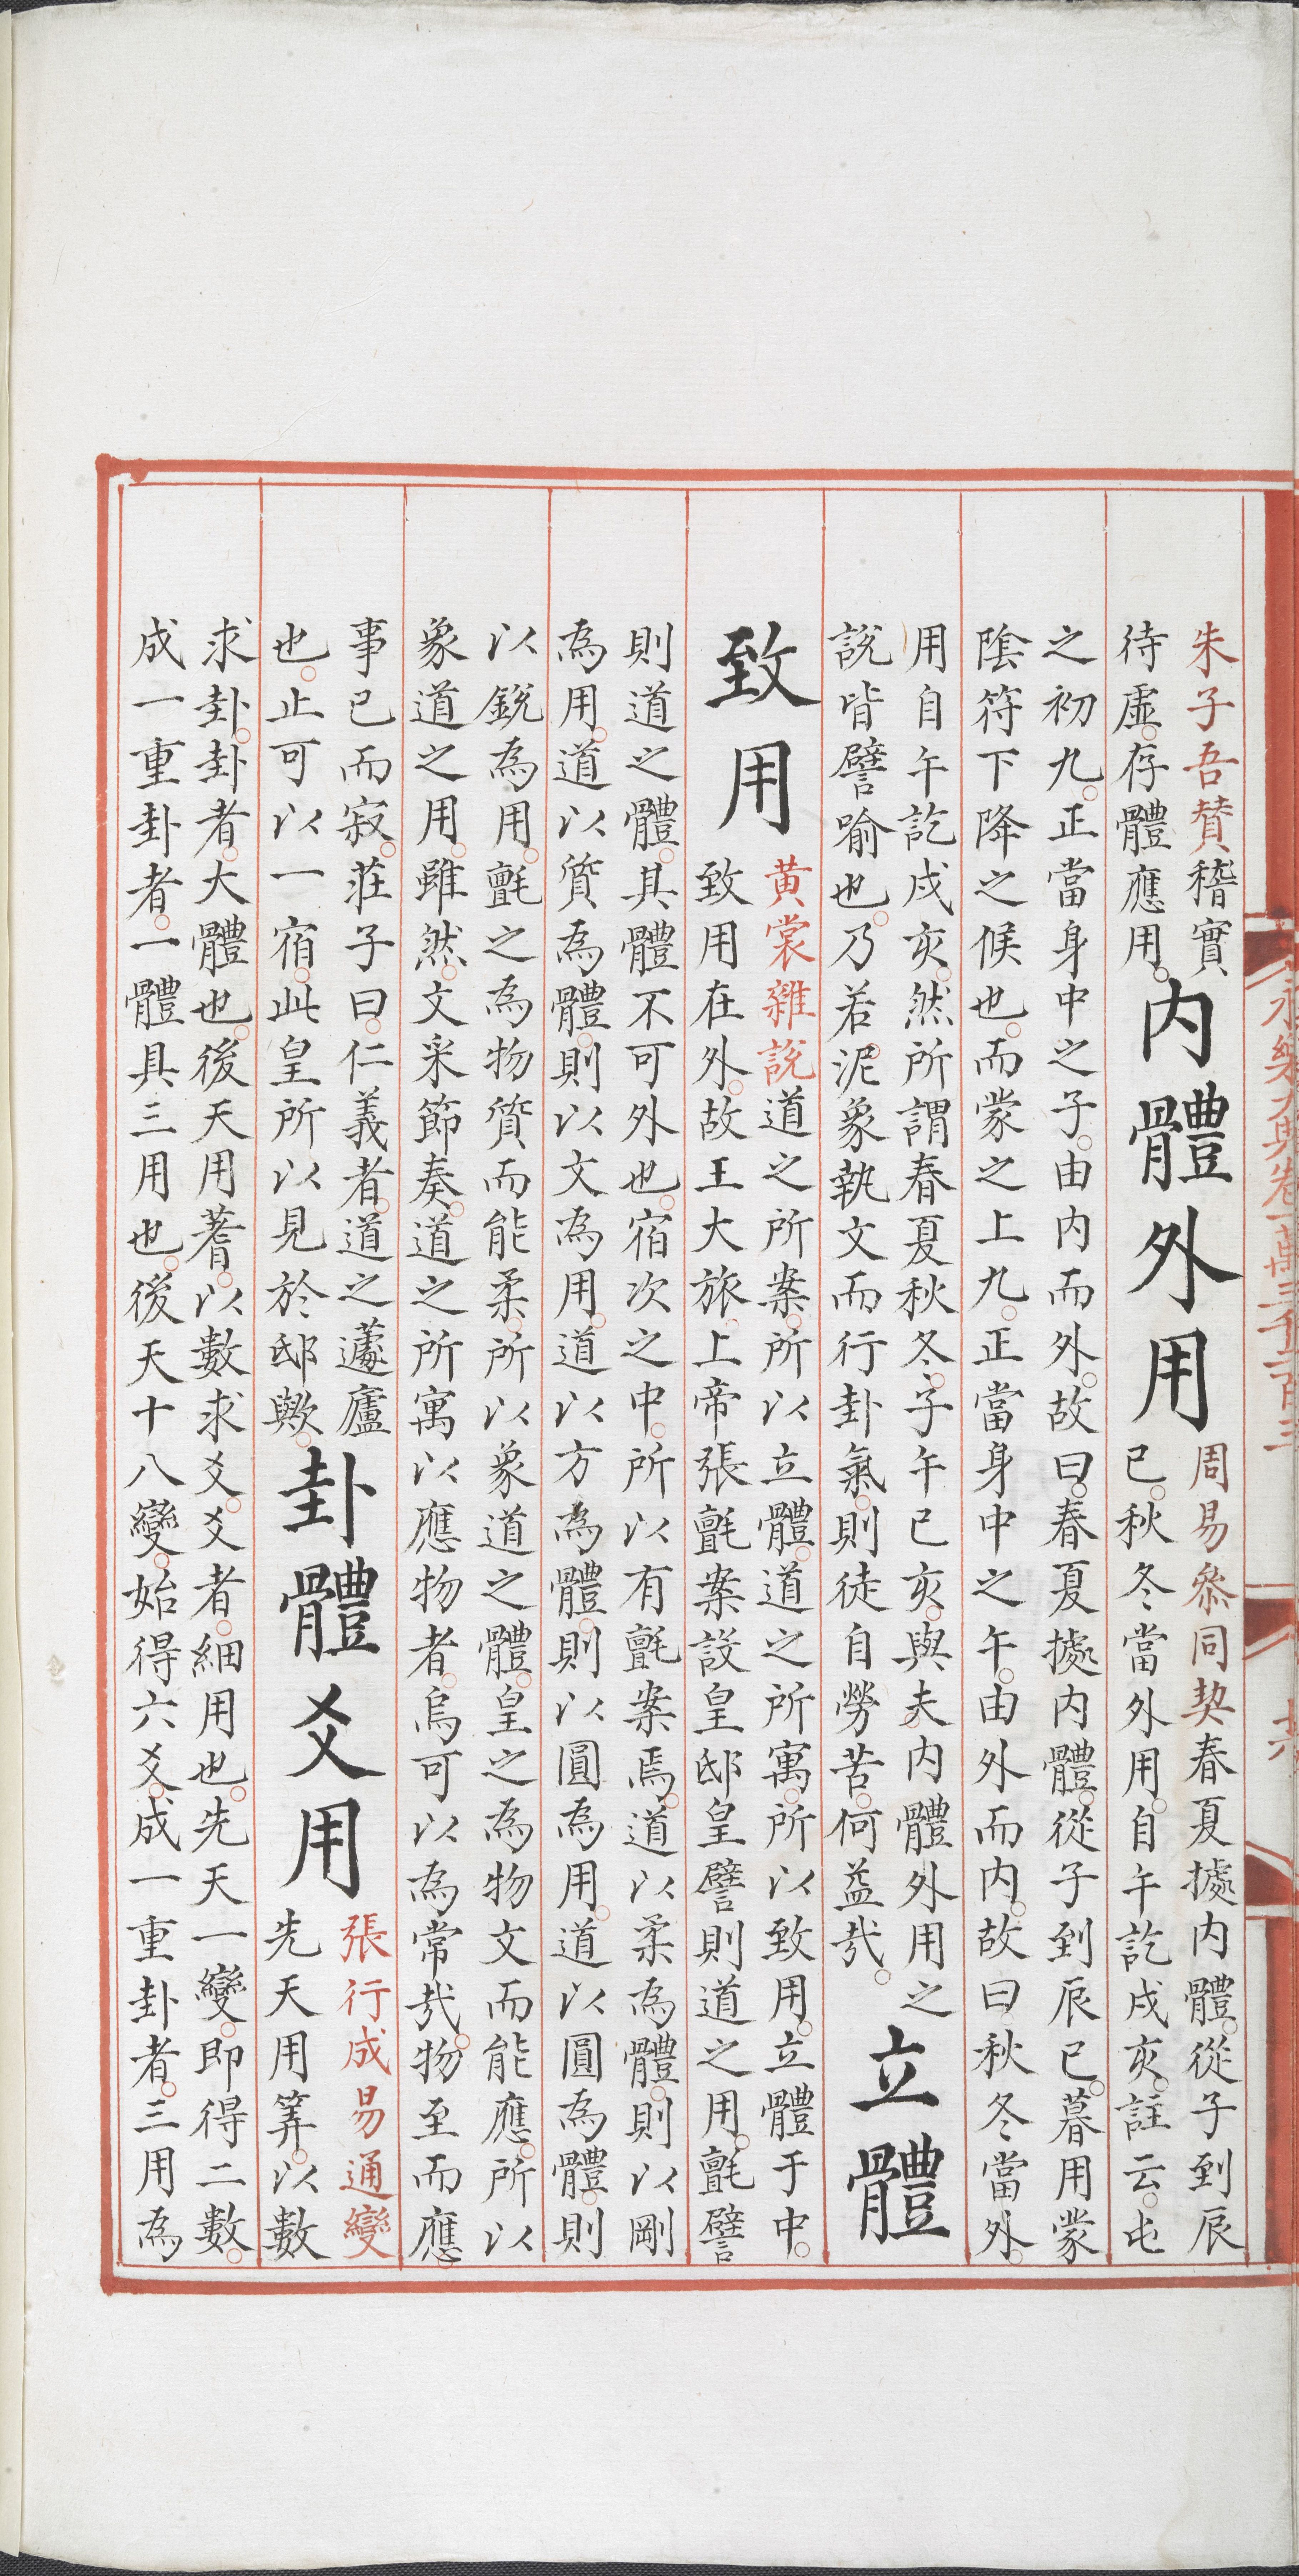 朱子吾賛稽實
待虛存體應用
内體外用
周易叅同契春夏據内體從子到辰
巳秋冬當外用自午訖戌亥註云屯
之初九正當身中之子由内而外故曰春夏據内體從子到辰巳暮用蒙
陰符下降之候也而蒙之上九正當身中之午由外而内故曰秋冬當外
用自午訖戌亥然所謂春夏秋冬子午巳亥與夫内體外用之
説皆譬喻也乃若泥象執文而行卦氣則徒自勞苦何益哉
立體
致用
黄裳雜説道之所案所以立體道之所寓所以致用立體于中
致用在外故王大旅上帝張氊案設皇邸皇譬則道之用氊譬
則道之體其體不可外也宿次之中所以有氊案焉道以柔為體則以剛
為用道以質為體則以文為用道以方為體則以圓為用道以圓為體則
以鋭為用氊之為物質而能柔所以象道之體皇之為物文而能應所以
象道之用雖然文采節奏道之所寓以應物者烏可以為常哉物至而應
事已而寂莊子曰仁義者道之蘧廬
也止可以一宿此皇所以見於邸歟
卦體爻用
張行成易通變
先天用筭以數
求卦卦者大體也後天用蓍以數求爻爻者細用也先天一變即得二數
成一重卦者一體具三用也後天十八變始得六爻成一重卦者三用為